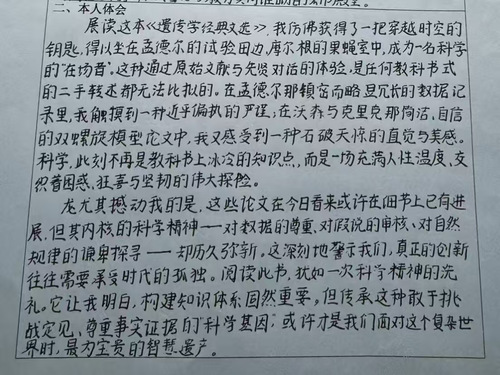 二、本人体会
展读这本《遗传学经典文选》,我仿佛获得了一把穿越时空的
钥匙,得以坐在孟德尔的试验田边,摩尔根的果蝇室中,成为一名科学
的"在场者"。这种通过原始文献与先贤对话的体验,是任何教科书式
的二手转述都无法比拟的。在孟德尔那缜密而略显冗长的数据记
录里,我触摸到一种近乎偏执的严谨;在沃森与克里克那简洁、自信
的双螺旋模型论文中,我又感受到一种石破天惊的直觉与美感。
科学,此刻不再是教科书上冰冷的知识点,而是一场充满人性温度、交
织着困惑、狂喜与坚韧的伟大探险。
尤其撼动我的是,这些论文在今日看来或许在细节上已有进
展,但其内核的科学精神——对数据的尊重、对假说的审核、对自然
规律的谦卑探寻——却历久弥新。这深刻地警示我们,真正的创新
往往需要承受时代的孤独。阅读此书,犹如一次科学精神的洗
礼。它让我明白,构建知识体系固然重要,但传承这种敢于挑
战定见、尊重事实证据的"科学基因",或许才是我们面对这个复杂世
界时,最为宝贵的智慧遗产。